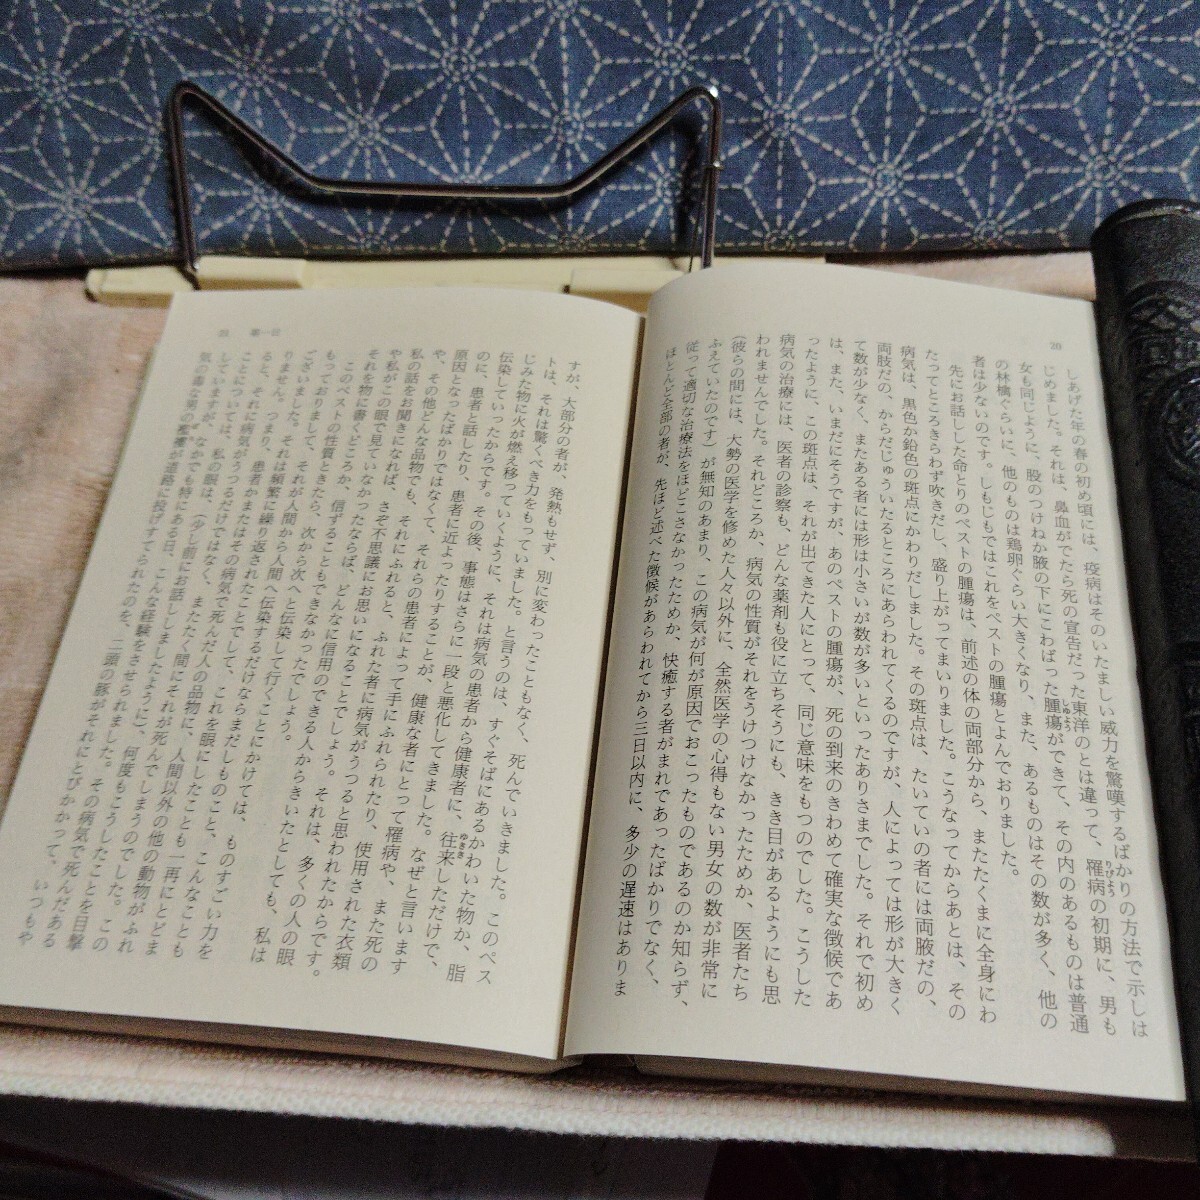 20
しあげた年の春の初め頃には、疫病はそのいたましい威力を驚嘆するばかりの方法で示しは
じめました。それは、鼻血がでたら死の宣告だった東洋のとは違って、罹病の初期に、男も
りびょう
女も同じように、股のつけねか腋の下にこわばった腫瘍ができて、その内のあるものは普通
しゅよう
の林檎ぐらいに、他のものは鶏卵ぐらい大きくなり、また、あるものはその数が多く、他の
者は少ないのです。しもじもではこれをペストの腫瘍とよんでおりました。
先にお話しした命とりのペストの腫瘍は、前述の体の両部分から、またたくまに全身にわ
たってところきらわず吹きだし、盛り上がってまいりました。こうなってからあとは、その
病気は、黒色か鉛色の斑点にかわりだしました。その斑点は、たいていの者には両腋だの、
両肢だの、からだじゅういたるところにあらわれてくるのですが、人によっては形が大きく
て数が少なく、またある者には形は小さいが数が多いといったありさまでした。それで初め
は、また、いまだにそうですが、あのペストの腫瘍が、死の到来のきわめて確実な徴候であ
ったように、この斑点は、それが出てきた人にとって、同じ意味をもつのでした。こうした
病気の治療には、医者の診察も、どんな薬剤も役に立ちそうにも、きき目があるようにも思
われませんでした。それどころか、病気の性質がそれをうけつけなかったためか、医者たち
(彼らの間には、大勢の医学を修めた人々以外に、全然医学の心得もない男女の数が非常に
ふえていたのです)が無知のあまり、この病気が何が原因でおこったものであるのか知らず、
従って適切な治療法をほどこさなかったためか、快癒する者がまれであったばかりでなく、
ほとんど全部の者が、先ほど述べた徴候があらわれてから三日以内に、多少の遅速はありま
第一日
すが、大部分の者が、発熱もせず、別に変わったこともなく、死んでいきました。このペス
トは、それは驚くべき力をもっていました。と言うのは、すぐそばにあるかわいた物か、脂
じみた物に火が燃え移っていくように、それは病気の患者から健康者に、往来しただけで、
ゆきき
伝染していったからです。その後、事態はさらに一段と悪化してきました。なぜと言います
のに、患者と話したり、患者に近よったりすることが、健康な者にとって罹病や、また死の
原因となったばかりではなくて、それらの患者によって手にふれられたり、使用された衣類
や、その他どんな品物でも、それにふれると、ふれた者に病気がうつると思われたからです。
私の話をお聞きになれば、さぞ不思議にお思いになることでしょう。それは、多くの人の眼
や私がこの眼で見ていなかったならば、どんなに信用のできる人からきいたとしても、私は
それを物に書くどころか、信ずることもできなかったでしょう。
このペストの性質ときたら、次から次へと伝染して行くことにかけては、ものすごい力を
もっておりまして、それが人間から人間へ伝染するだけならまだしものこと、こんなことも
ございました。それは頻繁に繰り返されたことでして、これを眼にしたことも一再にとどま
りません。つまり、患者かまたはその病気で死んだ人の品物に、人間以外の他の動物がふれ
ると、それに病気がうつるだけではなく、またたく間にそれが死んでしまうのでした。この
ことについては、私の眼は、(少し前にお話ししましたように)、何度もこうしたことを目撃
していますが、なかでも特にある日、こんな経験をさせられました。その病気で死んだある
気の毒な男の襤褸が道路に投げすてられたのを、二頭の豚がそれにとびかかって、いつもや